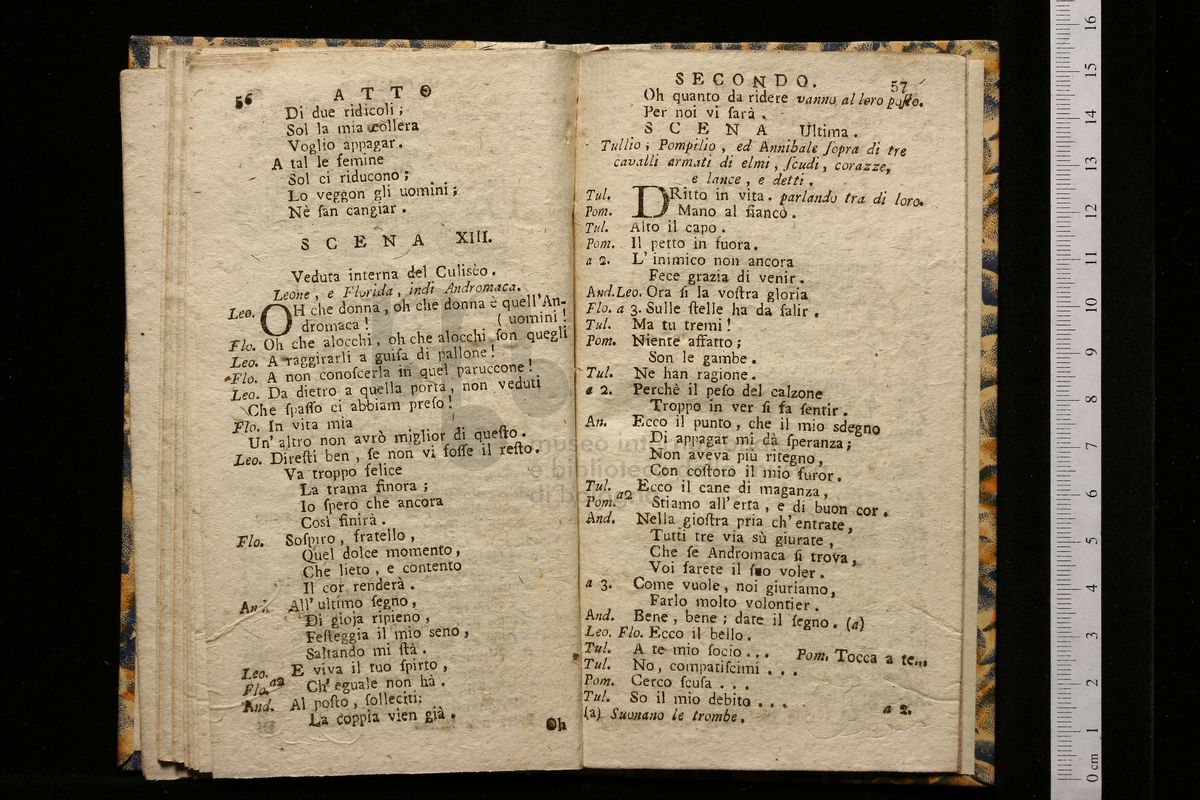 56 ATTO
Di due ridicoli;
Sol la mia collera
Voglio appagar.
A tal le femine
Sol ci riducono;
Lo veggon gli uomini;
Nè ſan cangiar.
SCENA XIII.
Veduta interna del Culisèo.
Leone, e Florida, indi Andromaca.
Leo. OH che donna, oh che donna è quell'An-
dromaca! ( uomini!
Flo. Oh che alocchi, oh che alocchi ſon quegli
Leo. A raggirarli a guiſa di pallone!
Flo. A non conoſcerla in quel paruccone!
Leo. Da dietro a quella porta, non veduti
Che ſpaſſo ci abbiam preſo!
Flo. In vita mia
Un' altro non avrò miglior di queſto.
Leo. Direſti ben, ſe non vi foſſe il reſto.
Va troppo felice
La trama finora;
Io ſpero che ancora
Così finirà.
Flo. Soſpiro, fratello,
Quel dolce momento,
Che lieto, e contento
Il cor renderà.
And. All' ultimo ſegno,
Di gioja ripieno,
Feſteggia il mio seno,
Saltando mi ſtà.
Leo. E viva il tuo ſpirto,
Flo. a2 Ch' eguale non hà.
And. Al poſto, ſolleciti;
La coppia vien già.
Oh
SECONDO. 57
Oh quanto da ridere vanno al loro poſto.
Per noi vi farà.
SCENA Ultima.
Tullio; Pompilio, ed Annibale ſopra di tre
cavalli armati di elmi, ſcudi, corazze,
e lance, e detti.
Tul. DRitto in vita. parlando tra di loro.
Pom. Mano al fianco.
Tul. Alto il capo.
Pom. Il petto in fuora.
a 2. L' inimico non ancora
Fece grazia di venir.
And. Leo. Ora ſi la voſtra gloria
Flo. a 3. Sulle ſtelle ha da ſalir.
Tul. Ma tu tremi!
Pom. Niente affatto;
Son le gambe.
Tul. Ne han ragione.
a 2. Perchè il peſo del calzone
Troppo in ver ſi fa ſentir.
An. Ecco il punto, che il mio sdegno
Di appagar mi dà ſperanza;
Non aveva più ritegno,
Con coſtoro il mio furor.
Tul. Ecco il cane di maganza,
Pom. a2 Stiamo all' erta, e di buon cor.
And. Nella gioſtra pria ch' entrate,
Tutti tre via sù giurate,
Che ſe Andromaca ſi trova,
Voi farete il ſuo voler.
a 3. Come vuole, noi giuriamo,
Farlo molto volontier.
And. Bene, bene; date il ſegno. (a)
Leo. Flo. Ecco il bello.
Tul. A te mio ſocio... Pom. Tocca a te...
Tul. No, compatiſcimi...
Pom. Cerco ſcuſa...
Tul. So il mio debito... a 2.
(a) Suonano le trombe.
museo internazionale
e biblioteca
di bologna
0 cm 1 2 3 4 5 6 7 8 9 10 11 12 13 14 15 16